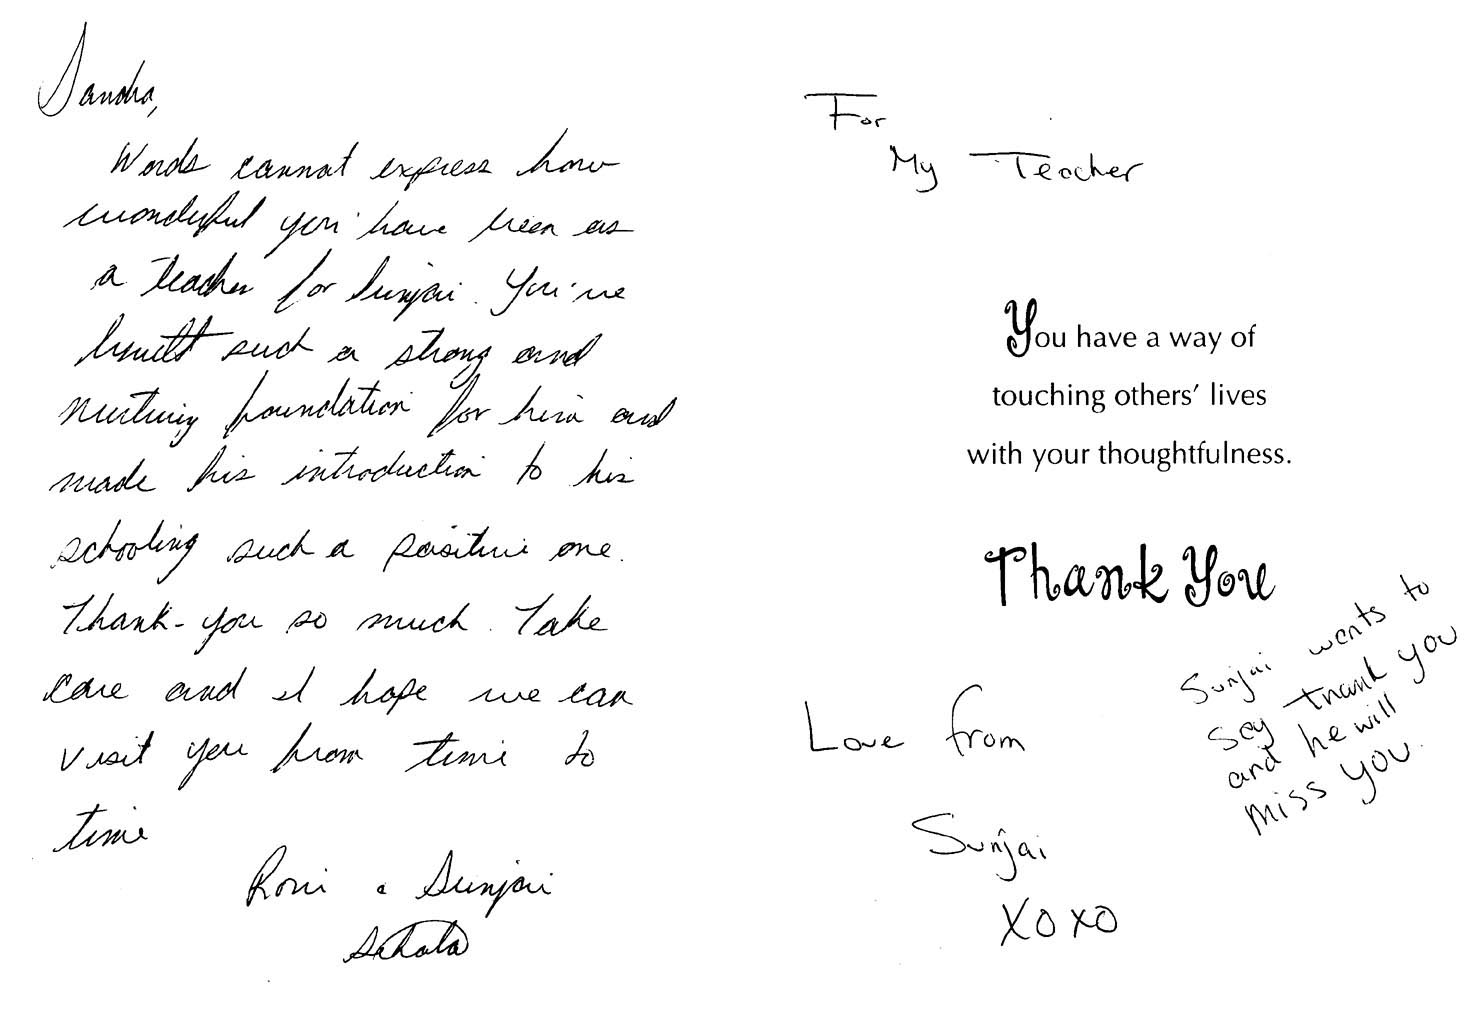 Sandra,
Words cannot express how
wonderful you have been as
a teacher for Sunjai. You've
built such a strong and
nurturing foundation for him and
made his introduction to his
schooling such a positive one.
Thank-you so much. Take
care and I hope we can
visit you from time to
time
Roni & Sunjai
For
My Teacher
You have a way of
touching others' lives
with your thoughtfulness.
Thank You
Sunjai wants to
say thank you
and he will
miss you.
Love from
Sunjai
XOXO